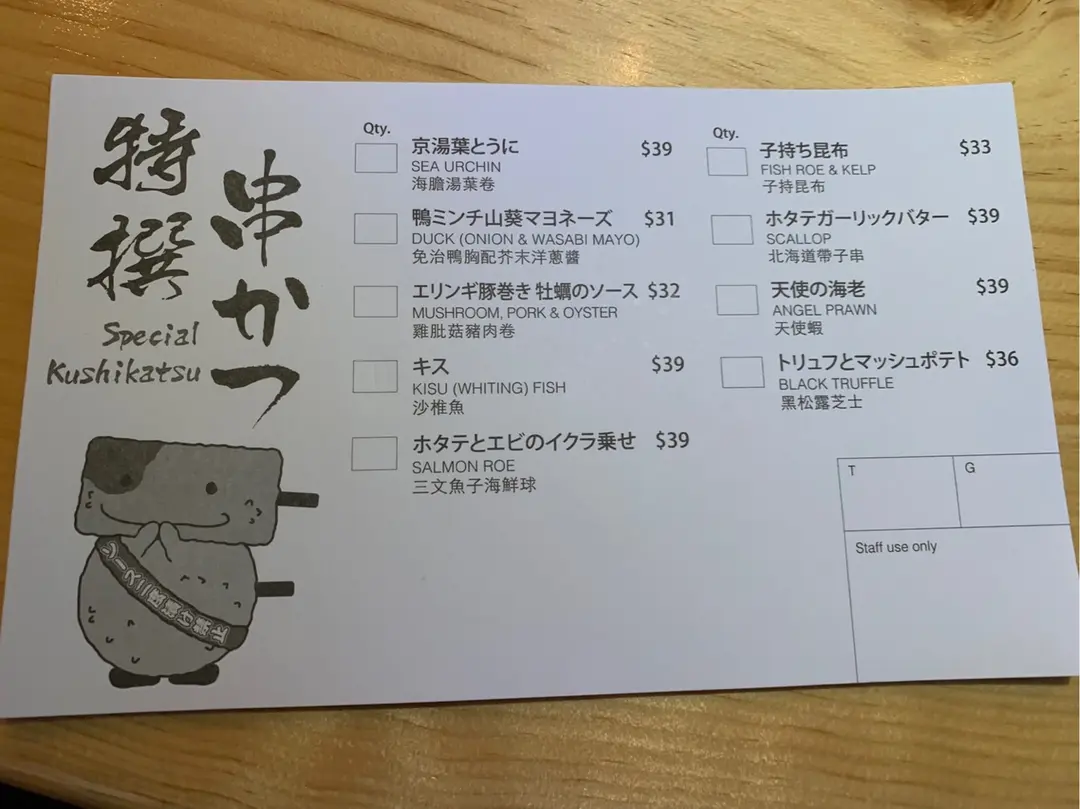 特撰
串かつ
Special
Kushikatsu
ソース二度漬け禁止
Qty.
京湯葉とうに $39
SEA URCHIN
海膽湯葉卷
鴨ミンチ山葵マヨネーズ $31
DUCK (ONION & WASABI MAYO)
免治鴨胸配芥末洋蔥醬
エリンギ豚巻き 牡蠣のソース $32
MUSHROOM, PORK & OYSTER
雞肶菇豬肉卷
キス $39
KISU (WHITING) FISH
沙椎魚
ホタテとエビのイクラ乗せ $39
SALMON ROE
三文魚子海鮮球
Qty.
子持ち昆布 $33
FISH ROE & KELP
子持昆布
ホタテガーリックバター $39
SCALLOP
北海道帶子串
天使の海老 $39
ANGEL PRAWN
天使蝦
トリュフとマッシュポテト $36
BLACK TRUFFLE
黑松露芝士
T G
Staff use only